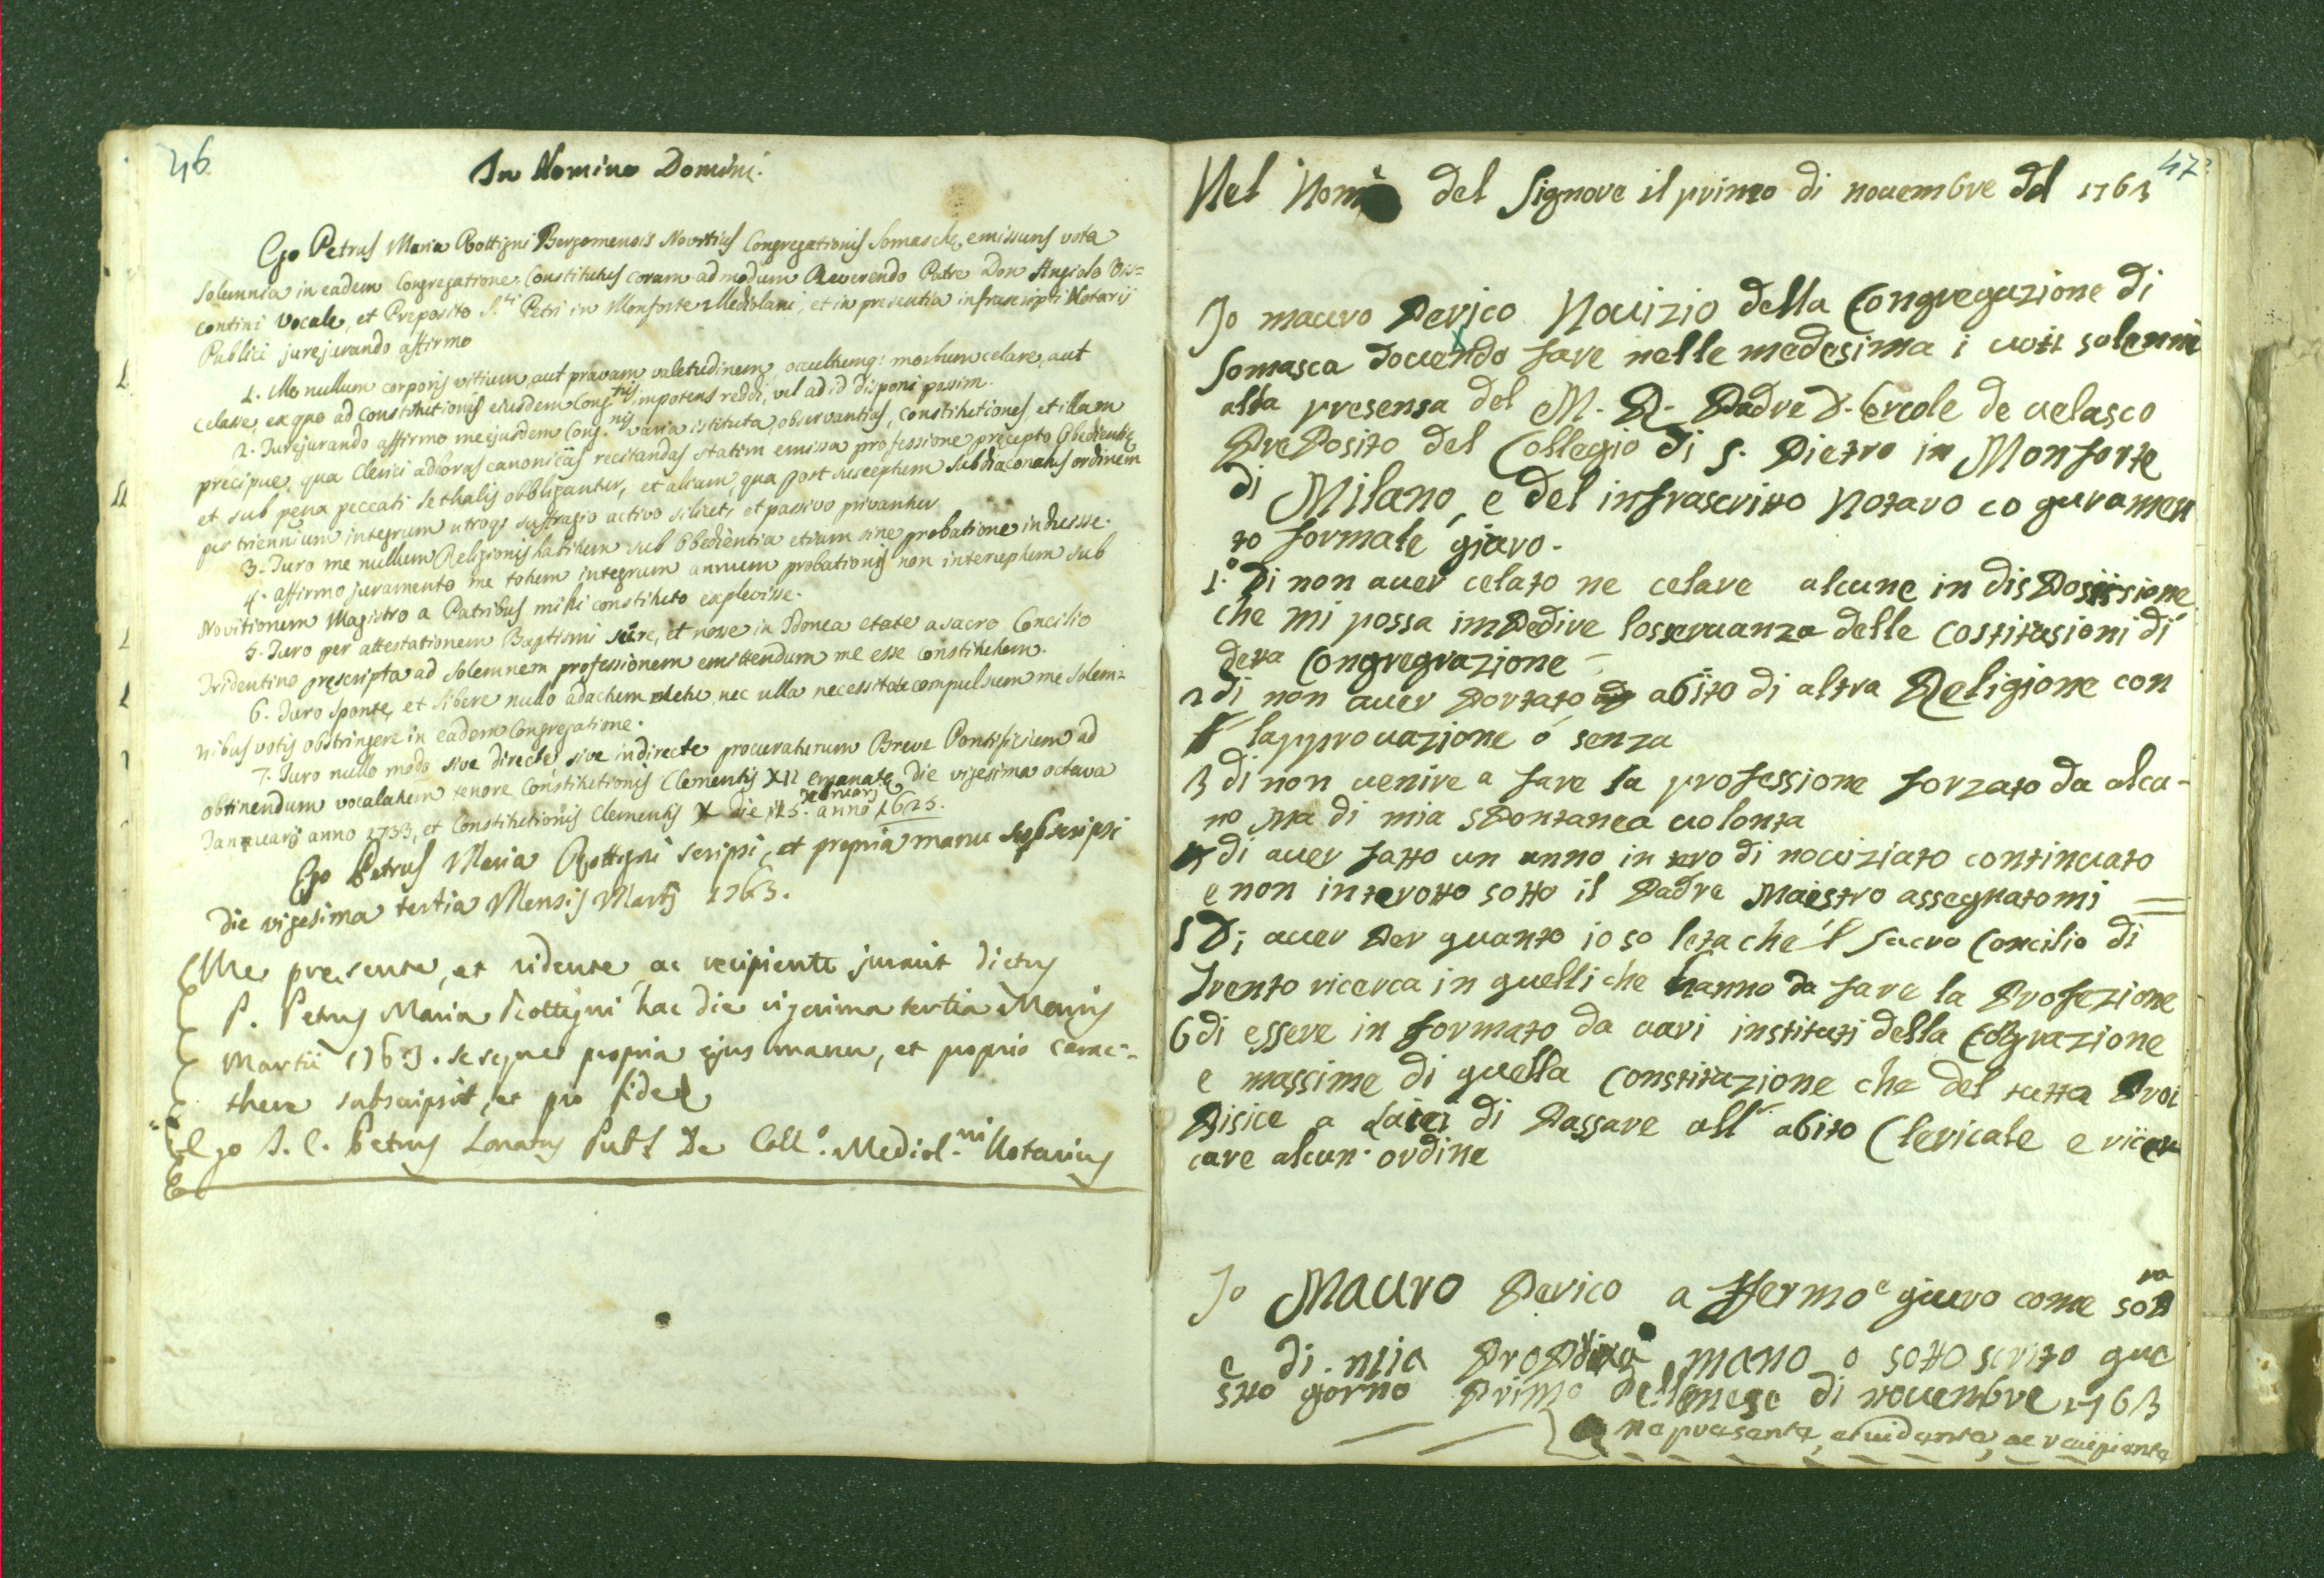 46
In Nomine Domini.
Ego Petrus Maria Rottigni Bergomensis Novitius Congregationis Somaschę emissurus vota
solemnia in eadem Congregatione Constitutus coram admodum Reverendo Patre Don Angiolo Vis=
contini Vocale, et Preposito S.ti Petri in Monforte Mediolani, et in presentia infrascripti Notarij
Publici jurejurando affirmo
1. Me nullum corporis vitium, aut pravam valetudinem, occultumq: morbum celare, aut
celasse, ex quo ad constitutionis ejusdem Cong.nis impotens reddi, vel ad id disponi possim.
2. Jurejurando affirmo me ejusdem Cong.nis varia istituta, observantias, constitutiones et illam
pręcipue, qua Clerici ad horas canonicas recitandas statim emissa professione pręcepto Obedientię
et sub pena peccati lethalis obbligantur, et aliam, qua post susceptum subdiaconatus ordinem
per triennium integrum utroq: suffragio activo silicet, et passivo privantur
3. Juro me nullum Religionis habitum sub Obedientia etiam sine probatione induisse.
4. Affirmo juramento me totum integrum annum probationis non interuptum sub
Novitiorum Magistro a Patribus mihi constituto explevisse.
5. Juro per attestationem Baptismi scire, et nosse in Idonea etate a sacro Concilio
Tridentino pręscripta ad solemnem professionem emittendum me esse constitutum.
6. Juro sponte, et libere nullo adactum metu, nec ulla necessitate compulsum me solem=
nibus votis obstringere in eadem Congregatione.
7. Juro nullo modo sive directe sive indirecte procuraturum Breve Pontificium ad
obtinendum vocalatum tenore Constitutionis Clementis XII emanatę die vigesima octava
Januarij anno 1733, et Constitutionis Clementis X die 15. februarij anno 1675.
Ego Petrus Maria Rottigni scripsi, et propria manu subscripsi
die vigesima tertia Mensis Martij 1763.
Me presente, et vidente ac recipiente juravit dictus
P. Petrus Maria Rottigni hac die vigesima tertia Mensis
Martii 1763. seseque propria ejus manu, et proprio carac-
there subscripsit, et pro fide
Ego J. C. Petrus Lonatus Pub.s De Coll.o Mediol.ni Notarius
47
Nel Nome del Signore il primo di nouembre del 1763
Io mauro Perico Nouizio della Congregazione di
Somasca douendo fare nelle medesima i uoti solenni
alla presensa del M. R. Padre D. Ercole de uelasco
PrePosito del Collegio di S. Pietro in Monforte
di Milano, e del infrascritto Notaro co guramen
to formale giuro.
1.o Di non auer celato ne celare alcune in disPosissione
che mi possa imPedire losseruanza delle costitusioni di
deta Congregrazione
2 di non auer Portato abito di altra Religione con
lapprouazione ó senza
3 di non uenire a fare la professione forzato da alcu-
no ma di mia sPontanea uolonta
4 di auer fatto un anno in tero di nouiziato continuato
e non interotto sotto il Padre Maestro assegnatomi
5 Di auer Per quanto io so leta che 'l sacro Concilio di
Trento ricerca in quelli che hanno da fare la Profezione
6 di essere in formato da uari instituti della Cograzione
e massime di quella constituzione che del tutta Proi
Bisice a Laici di Passare all' abito Clericale e ricer
care alcun. ordine
Io Mauro Perico a ffermo e giuro come sopra
e di mia ProPria mano o sotto scrito que
stto giorno Primo dell mese di nouembre 1763
me presente, et uidente, ac recipiente